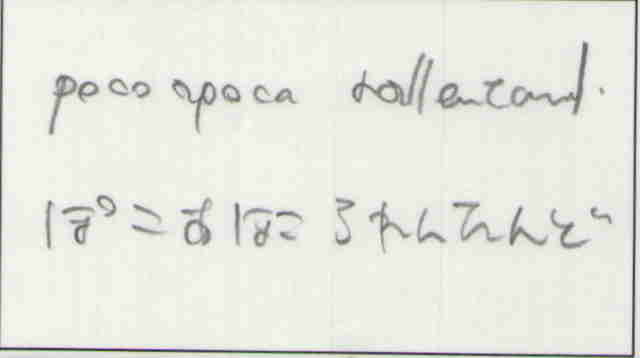 poco apoca rallentand.
ぽこあほこ ろれんたんど